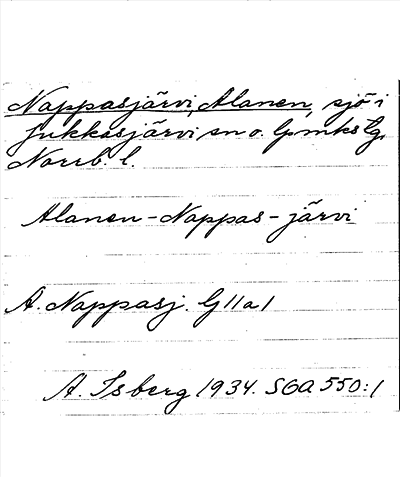 Nappasjärvi, Alanen, sjö i
Jukkasjärvi sn o. lpmks lg,
Norrb. l.
Alanen-Nappas-järvi
A. Nappasj. G 11 a 1
A. Isberg 1934. SOA 550:1